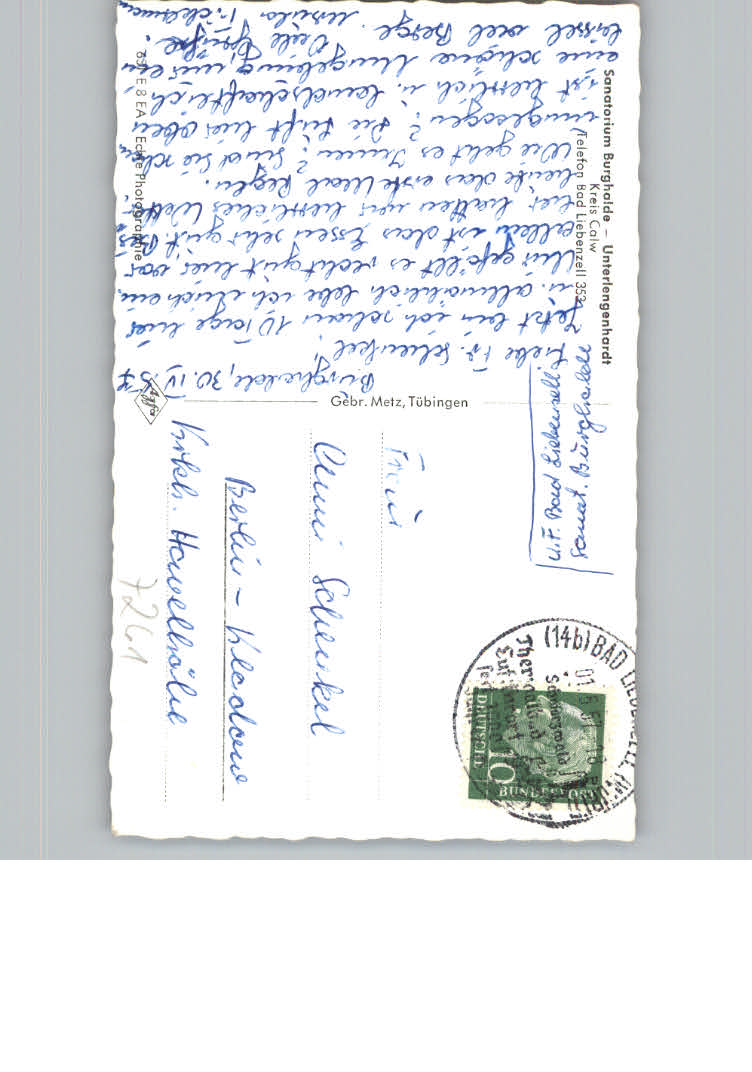 Sanatorium Burghalde – Unterlengenhardt
Kreis Calw
Telefon Bad Liebenzell 353
Burghalde, 30. IV. 57
Liebe Fr. Schenkel,
Jetzt bin ich schon 10 Tage hier
u. allmählich lebe ich mich ein.
Mir gefällt es recht gut hier vor
allem ist das Essen sehr gut. Bis
hier hatten wir herrliches Wetter,
heute das erste Mal Regen.
Wie geht es Ihnen? Sind Sie schon
umgezogen? Die Luft hier oben
ist herrlich u. landschaftlich
eine schöne Umgebung, nur ein
bissel viel Berge. Viele Grüße
Ursula
E 8 EA Echte Photographie
Gebr. Metz, Tübingen
Agfa
U.F. Bad Liebenzell
Sanat. Burghalde
(14b) BAD LIEBENZELL
Schwarzwald
Thermalbad
Luftkurort
10
DEUTSCHE
BUNDESPOST
Frau
Anni Schenkel
Berlin – Kladow
Krkh. Havelhöhe
7261